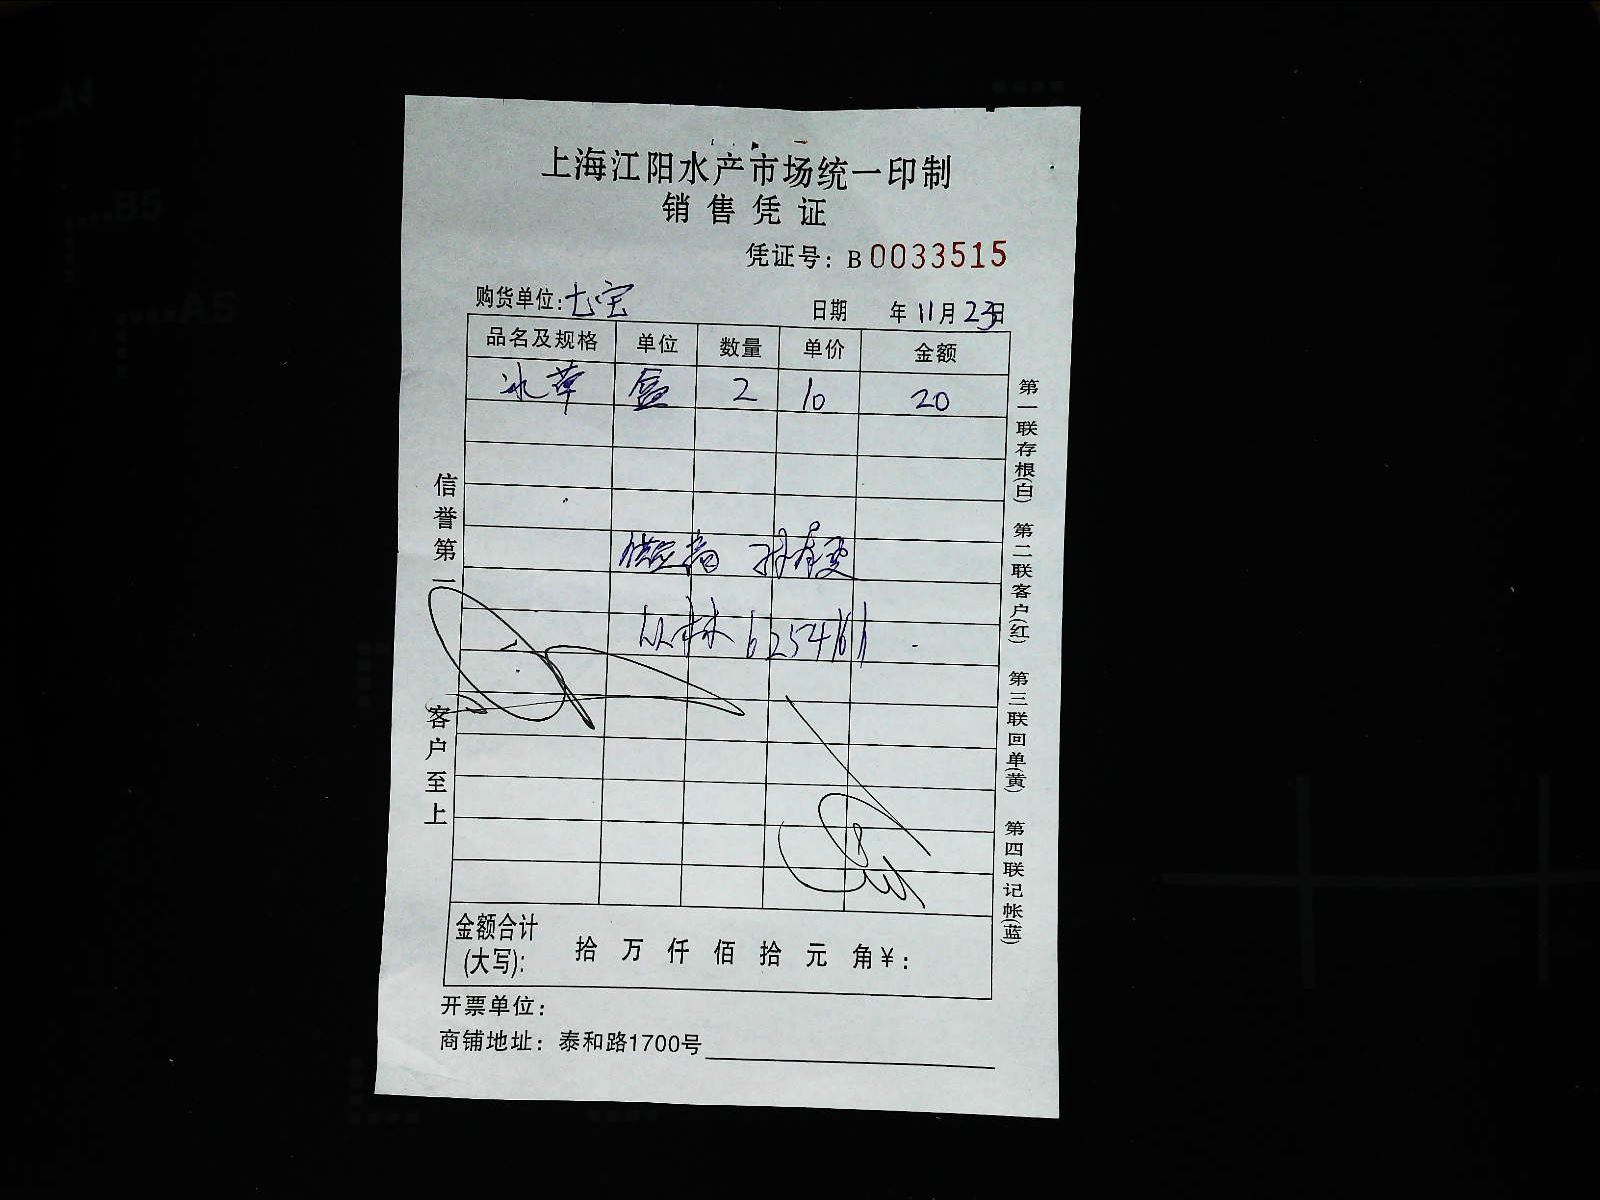 上海江阳水产市场统一印制
销售凭证
凭证号：B0033515
购货单位：七宝 日期 年11月23日
品名及规格 单位 数量 单价 金额
冰草 盒 2 10 20
供应商
6254161
信誉第一 客户至上
第一联存根(白) 第二联客户(红) 第三联回单(黄) 第四联记帐(蓝)
金额合计(大写): 拾 万 仟 佰 拾 元 角 ¥:
开票单位：
商铺地址：泰和路1700号
A4
B5
A5